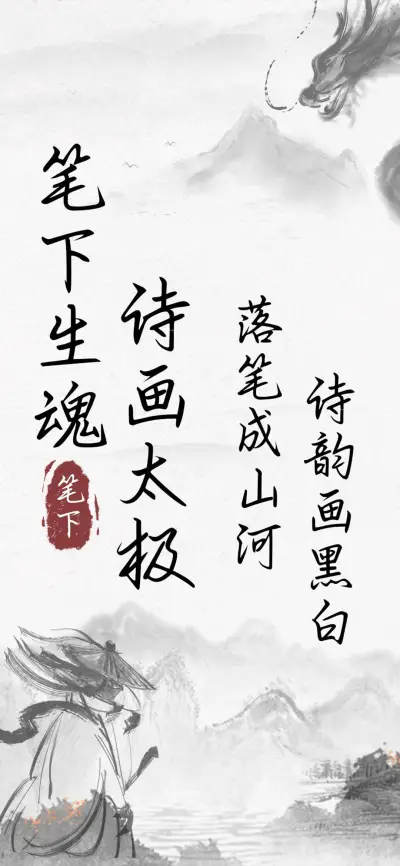 诗韵画黑白
落笔成山河
诗画太极
笔下生魂
笔下